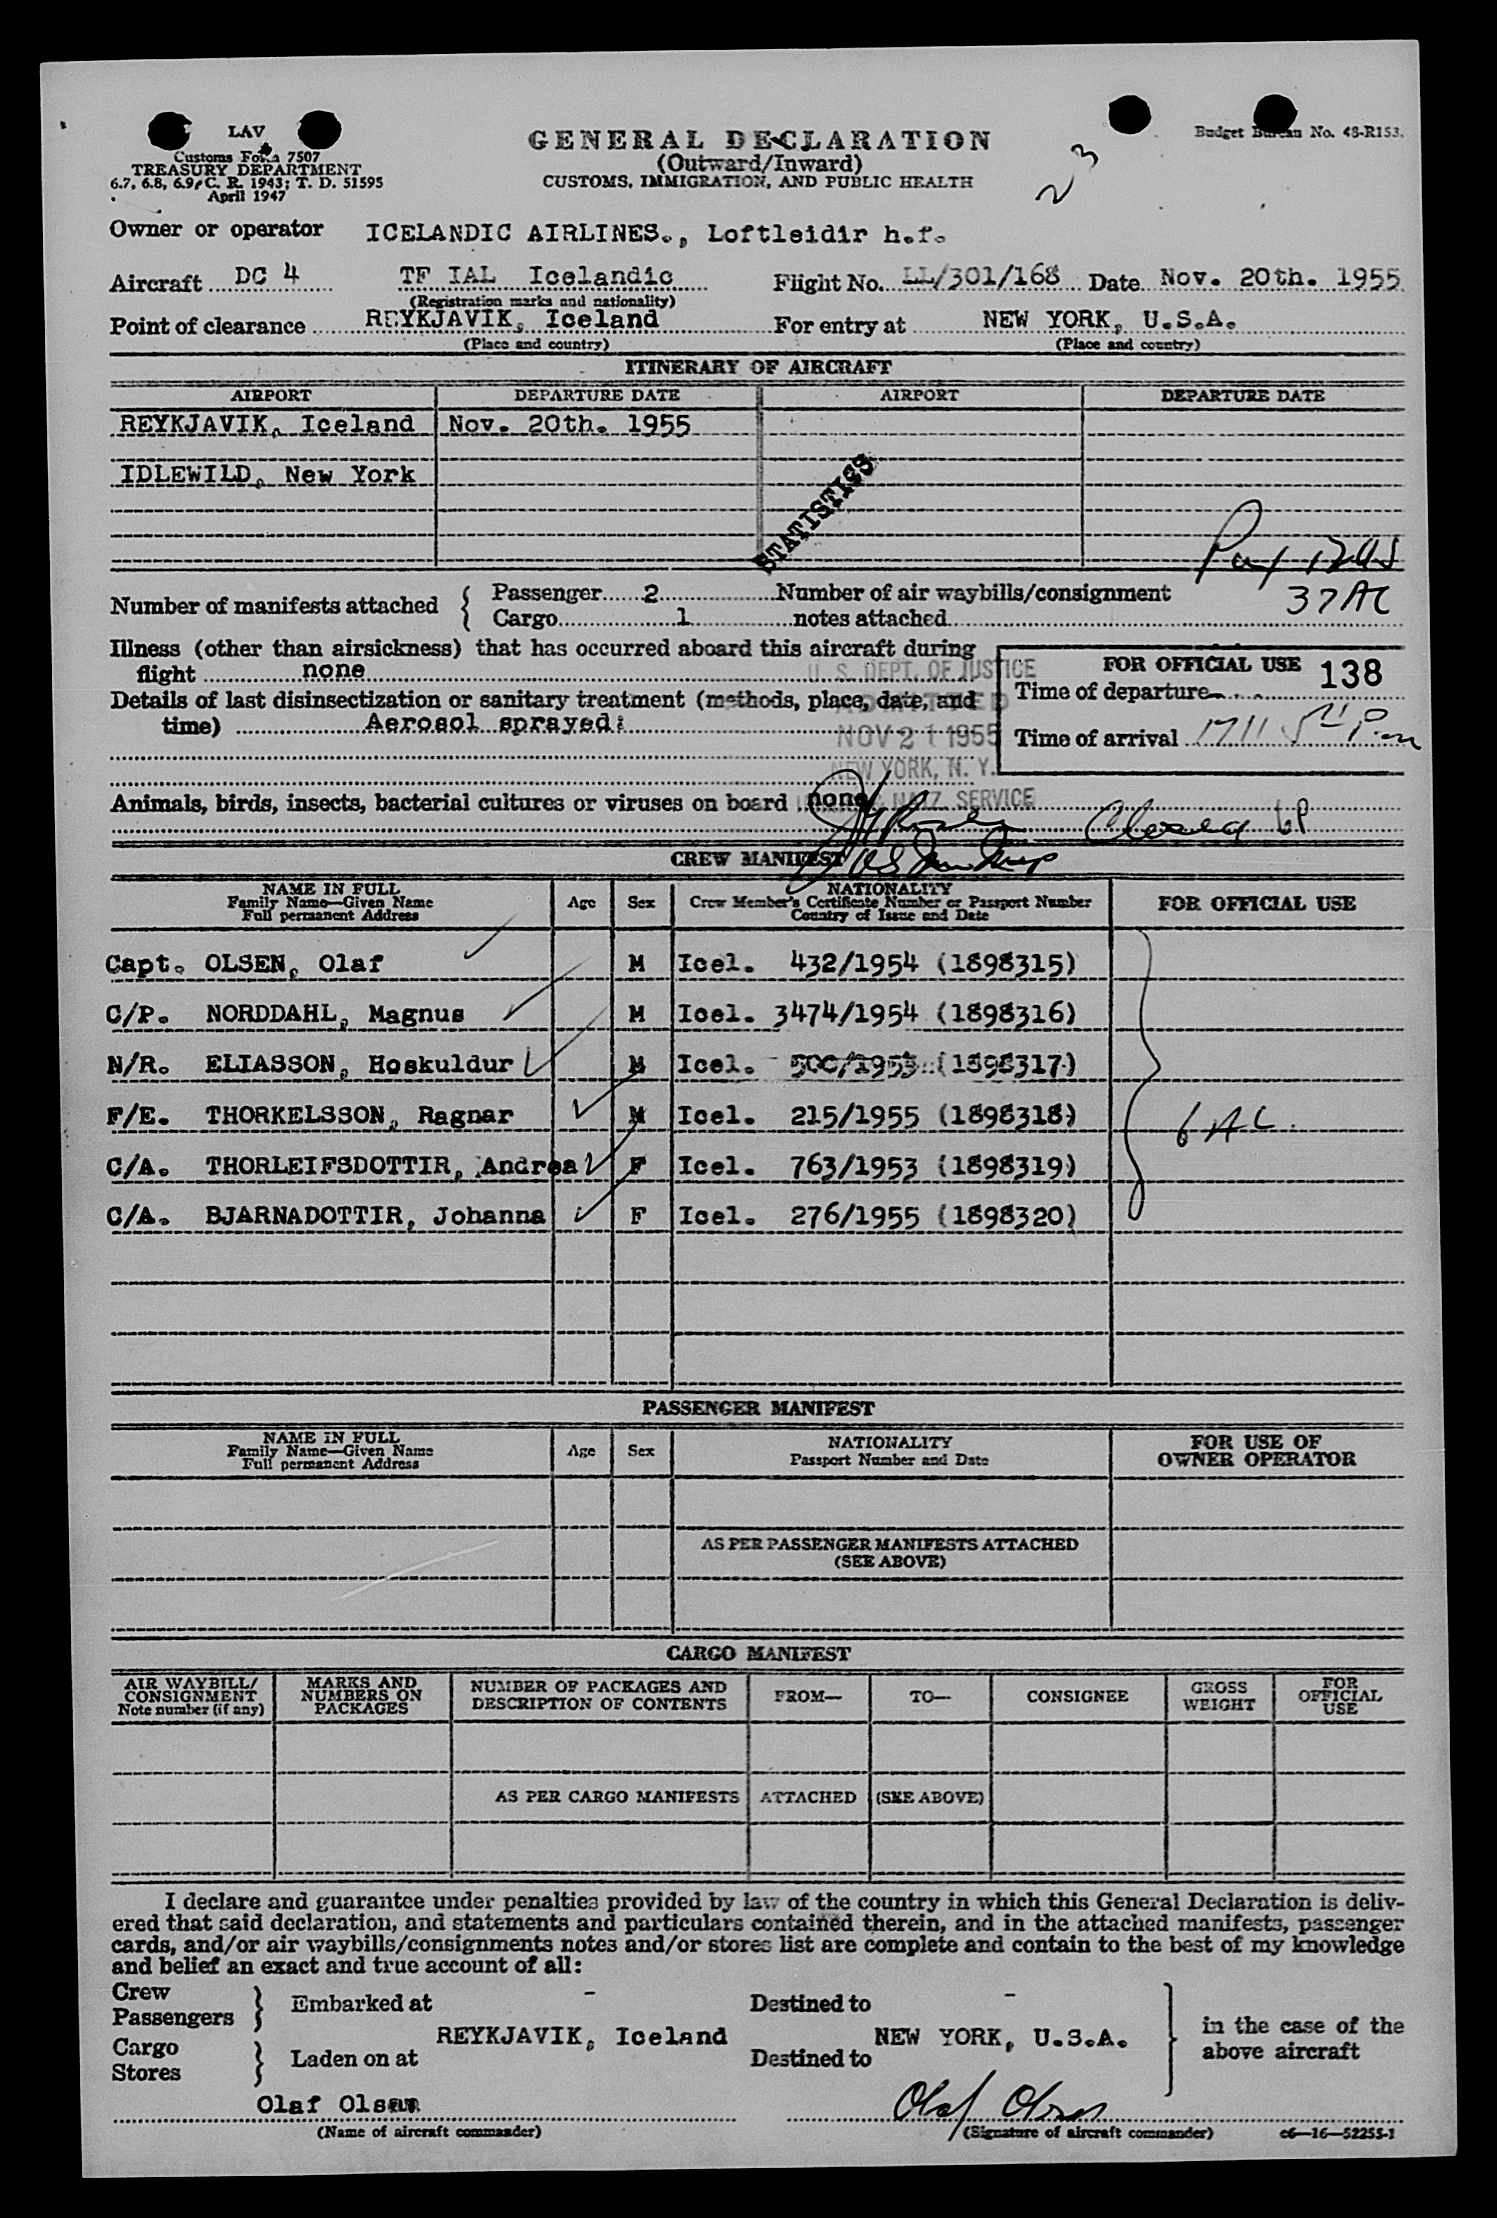 LAV
Budget Bureau No. 48-R153.
Customs Form 7507
TREASURY DEPARTMENT
6.7, 6.8, 6.9, C. R. 1943; T. D. 51595
April 1947
GENERAL DECLARATION
(Outward/Inward)
CUSTOMS, IMMIGRATION, AND PUBLIC HEALTH
23
Owner or operator ICELANDIC AIRLINES., Loftleidir h.f.
Aircraft DC 4 TF IAL Icelandic Flight No. LL/301/168 Date Nov. 20th. 1955
(Registration marks and nationality)
Point of clearance REYKJAVIK, Iceland For entry at NEW YORK, U.S.A.
(Place and country) (Place and country)
ITINERARY OF AIRCRAFT
AIRPORT DEPARTURE DATE AIRPORT DEPARTURE DATE
REYKJAVIK, Iceland Nov. 20th. 1955
IDLEWILD, New York
STATISTICS
37 AC
Number of manifests attached { Passenger 2 Number of air waybills/consignment
Cargo 1 notes attached
Illness (other than airsickness) that has occurred aboard this aircraft during
flight none
Details of last disinsectization or sanitary treatment (methods, place, date, and
time) Aerosol sprayed:
U. S. DEPT. OF JUSTICE
ADMITTED
NOV 21 1955
NEW YORK, N. Y.
NATZ. SERVICE
FOR OFFICIAL USE 138
Time of departure
Time of arrival 1711 5 11 P.m
Animals, birds, insects, bacterial cultures or viruses on board none
Closed
CREW MANIFEST
NAME IN FULL
Family Name—Given Name
Full permanent Address
Age Sex
NATIONALITY
Crew Member's Certificate Number or Passport Number
Country of Issue and Date
FOR OFFICIAL USE
Capt. OLSEN, Olaf M Icel. 432/1954 (1898315)
C/P. NORDDAHL, Magnus M Icel. 3474/1954 (1898316)
N/R. ELIASSON, Hoskuldur M Icel. 500/1953 (1898317)
F/E. THORKELSSON, Ragnar M Icel. 215/1955 (1898318)
C/A. THORLEIFSDOTTIR, Andrea F Icel. 763/1953 (1898319)
C/A. BJARNADOTTIR, Johanna F Icel. 276/1955 (1898320)
6 AC.
PASSENGER MANIFEST
NAME IN FULL
Family Name—Given Name
Full permanent Address
Age Sex
NATIONALITY
Passport Number and Date
FOR USE OF
OWNER OPERATOR
AS PER PASSENGER MANIFESTS ATTACHED
(SEE ABOVE)
CARGO MANIFEST
AIR WAYBILL/
CONSIGNMENT
Note number (if any)
MARKS AND
NUMBERS ON
PACKAGES
NUMBER OF PACKAGES AND
DESCRIPTION OF CONTENTS
FROM— TO— CONSIGNEE
GROSS
WEIGHT
FOR
OFFICIAL
USE
AS PER CARGO MANIFESTS ATTACHED (SEE ABOVE)
I declare and guarantee under penalties provided by law of the country in which this General Declaration is deliv-
ered that said declaration, and statements and particulars contained therein, and in the attached manifests, passenger
cards, and/or air waybills/consignments notes and/or stores list are complete and contain to the best of my knowledge
and belief an exact and true account of all:
Crew
Passengers } Embarked at - Destined to -
REYKJAVIK, Iceland NEW YORK, U.S.A.
Cargo
Stores } Laden on at Destined to
in the case of the
above aircraft
Olaf Olsen Olaf Olsen
(Name of aircraft commander) (Signature of aircraft commander) c6—16—52255-1